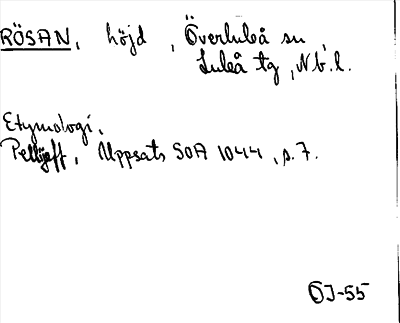 RÖSAN, höjd, Överluleå sn,
Luleå tg, Nb. l.
Etymologi.
Pellijeff, Uppsats SOA 1044, s. 7.
ÖJ-55